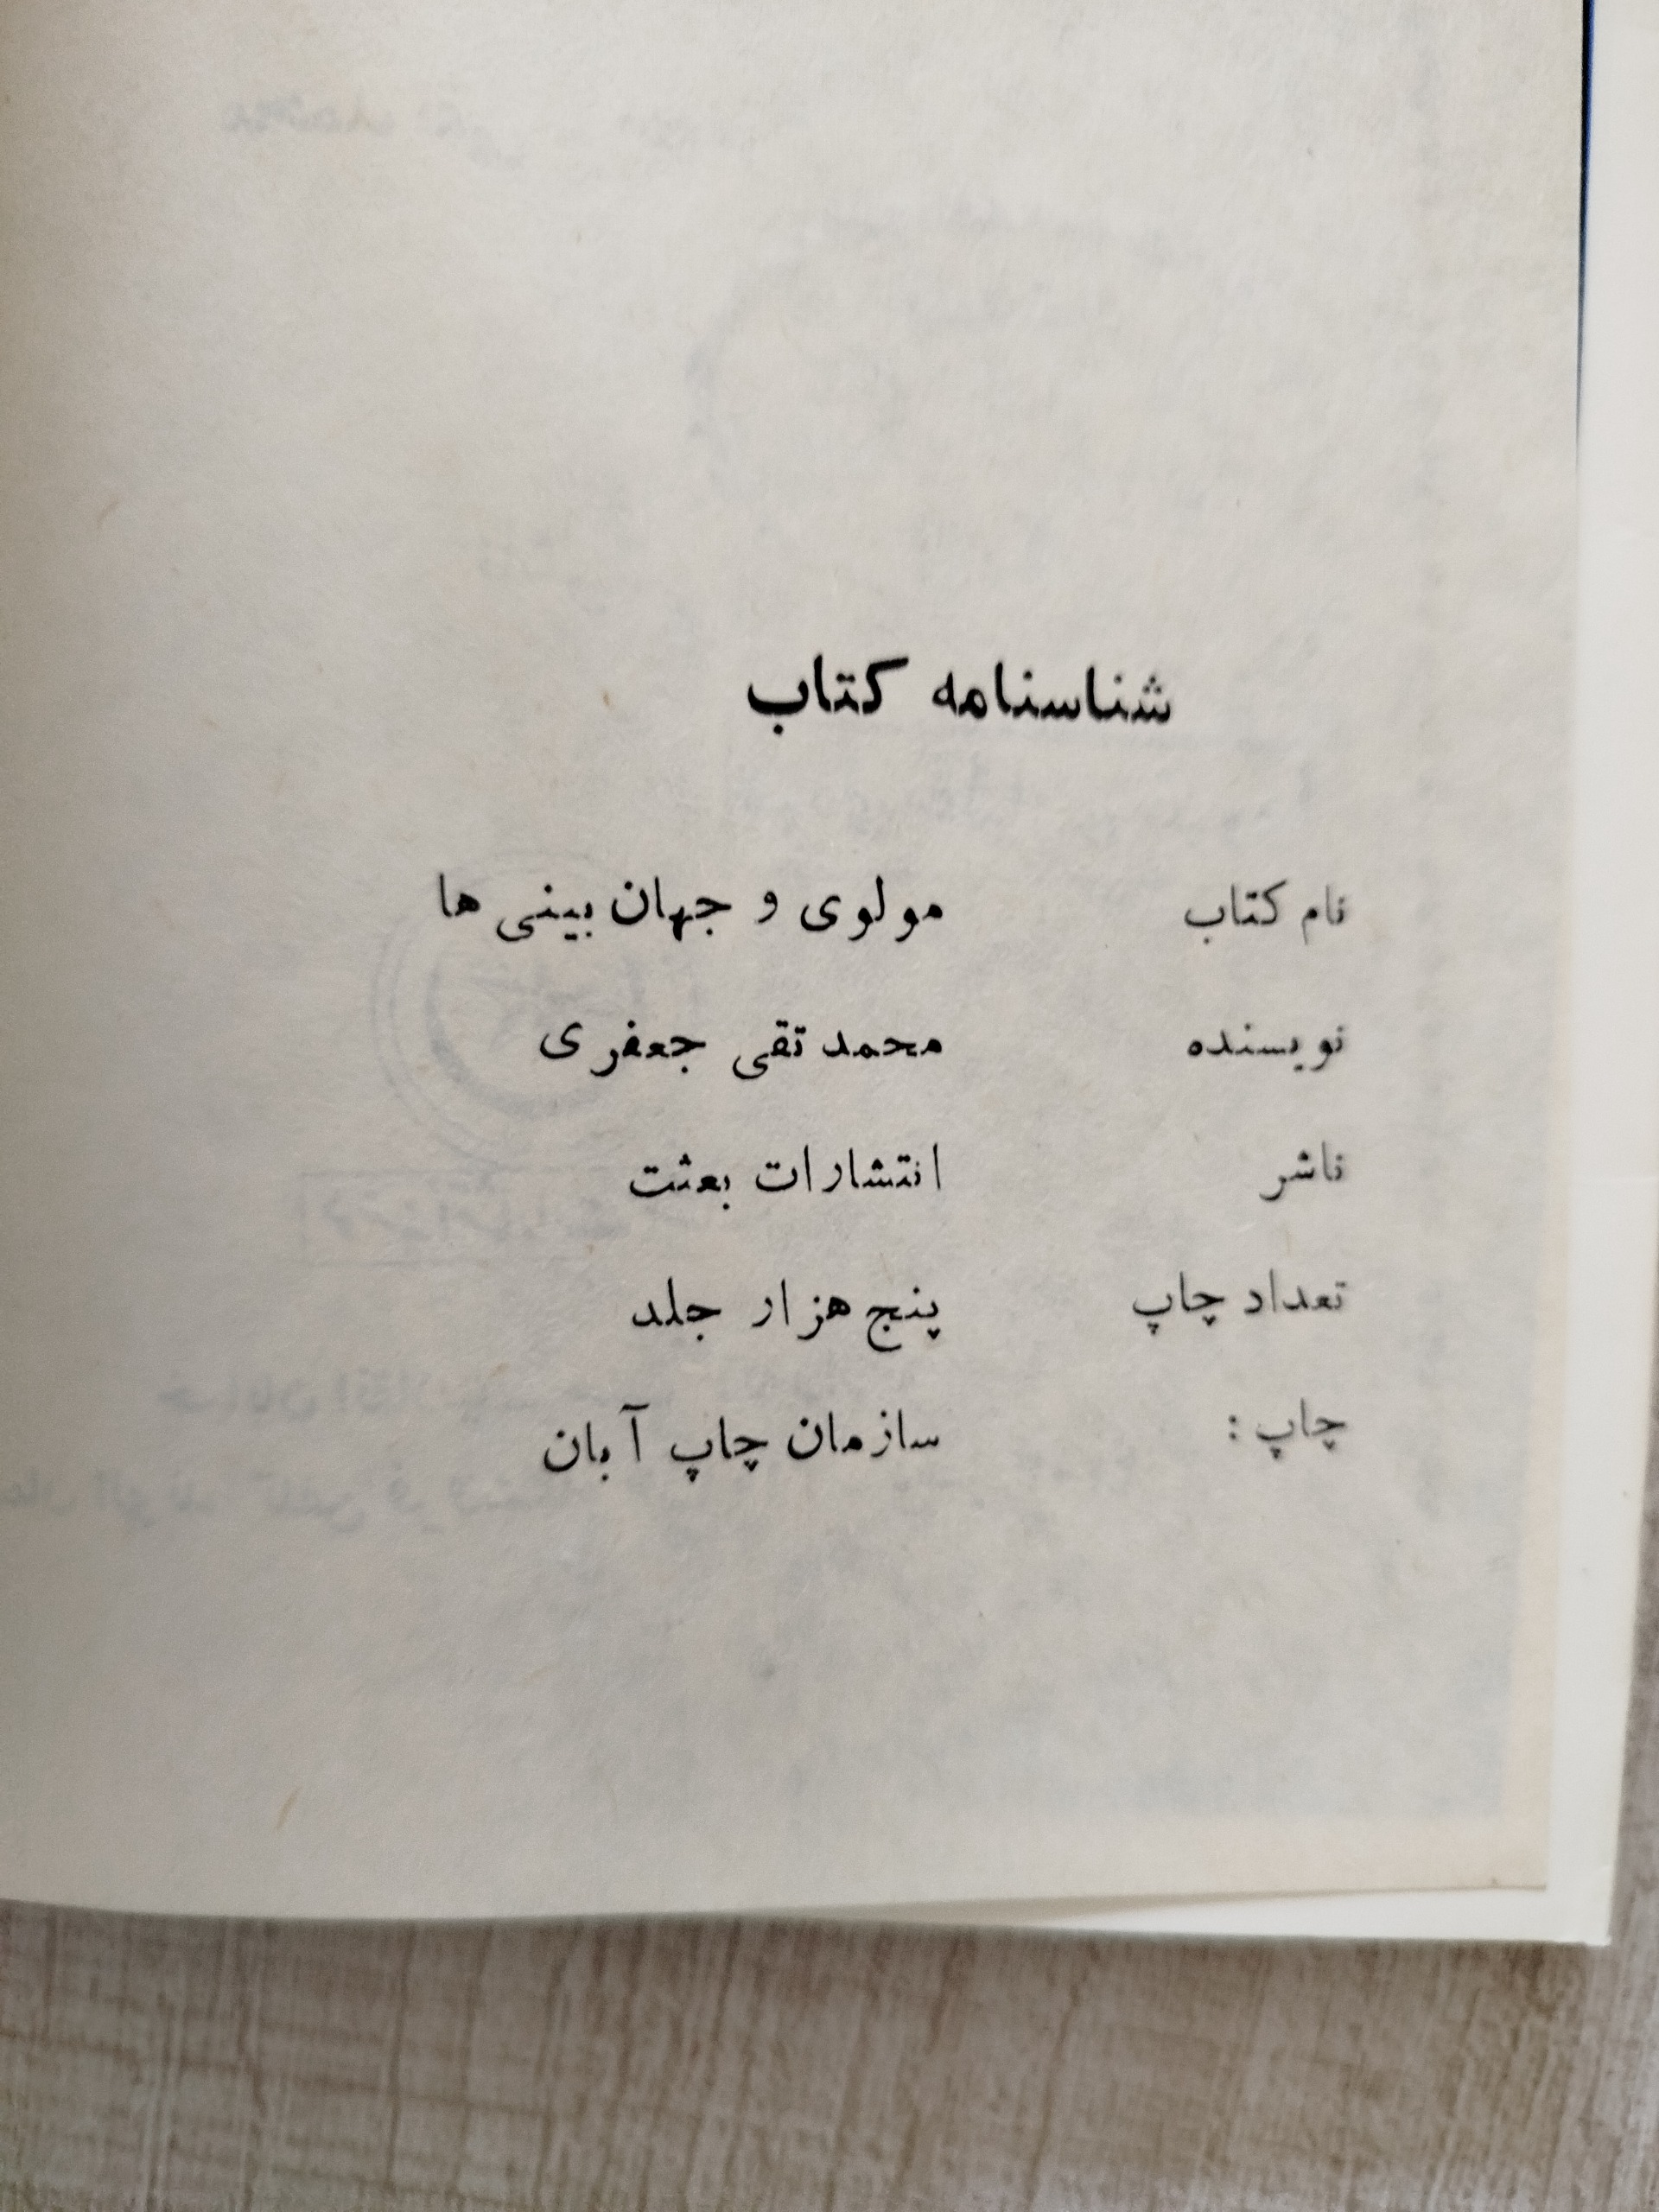 شناسنامه کتاب
نام کتاب مولوی و جهان بینی ها
نویسنده محمد تقی جعفری
ناشر انتشارات بعثت
تعداد چاپ پنج هزار جلد
چاپ : سازمان چاپ آبان